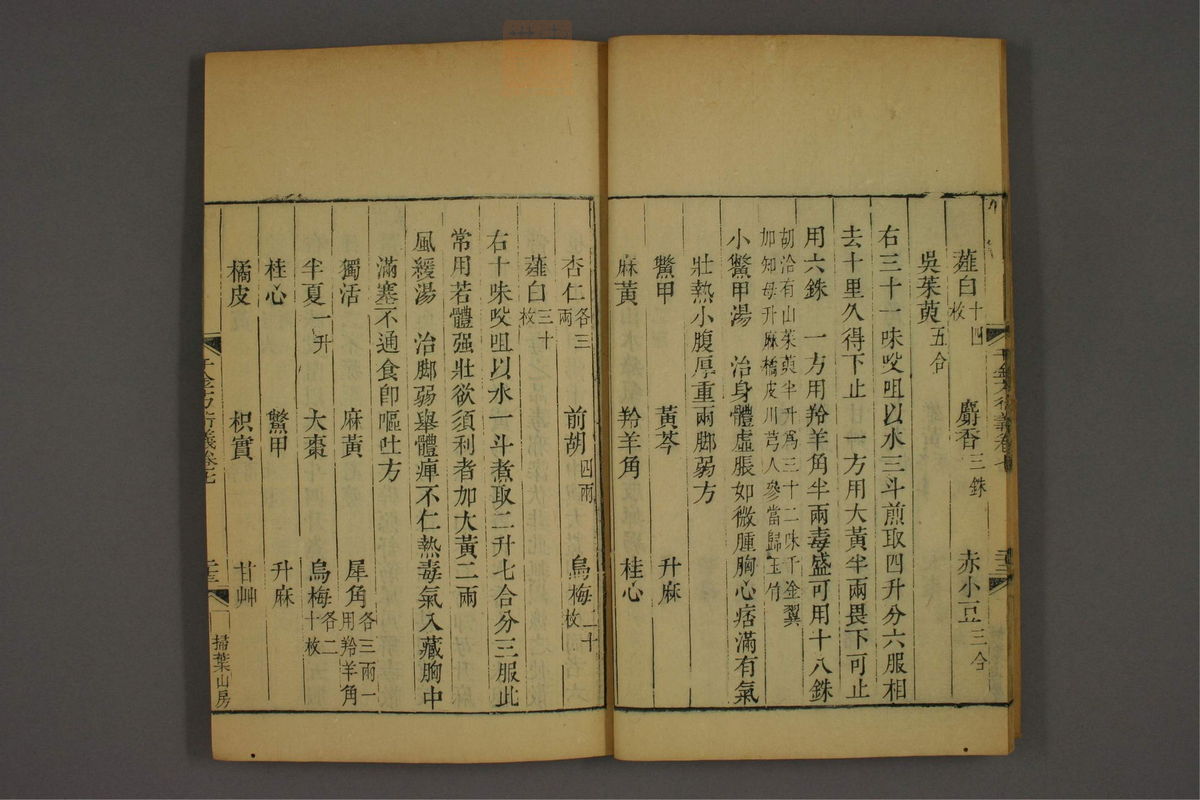 薤白十四枚　麝香三銖　赤小豆三合
吳茱萸五合
右三十一味㕮咀以水三斗煎取四升分六服相
去十里久得下止　一方用大黃半兩畏下可止
用六銖　一方用羚羊角半兩毒盛可用十八銖
胡洽有山茱萸半升爲三十二味千金翼
加知母升麻橘皮川芎人參當歸玉竹
小鱉甲湯　治身體虛脹如微腫胸心痞滿有氣
壯熱小腹厚重兩脚弱方
鱉甲　黃芩　升麻
麻黃　羚羊角　桂心
杏仁各三兩　前胡四兩　烏梅二十枚
薤白三十枚
右十味㕮咀以水一斗煮取二升七合分三服此
常用若體强壯欲須利者加大黃二兩
風緩湯　治脚弱舉體痺不仁熱毒氣入藏胸中
滿塞不通食卽嘔吐方
獨活　麻黃　犀角各三兩一用羚羊角
半夏一升　大棗　烏梅各二十枚
桂心　鱉甲　升麻
橘皮　枳實　甘艸
千金方衍義卷七
掃葉山房